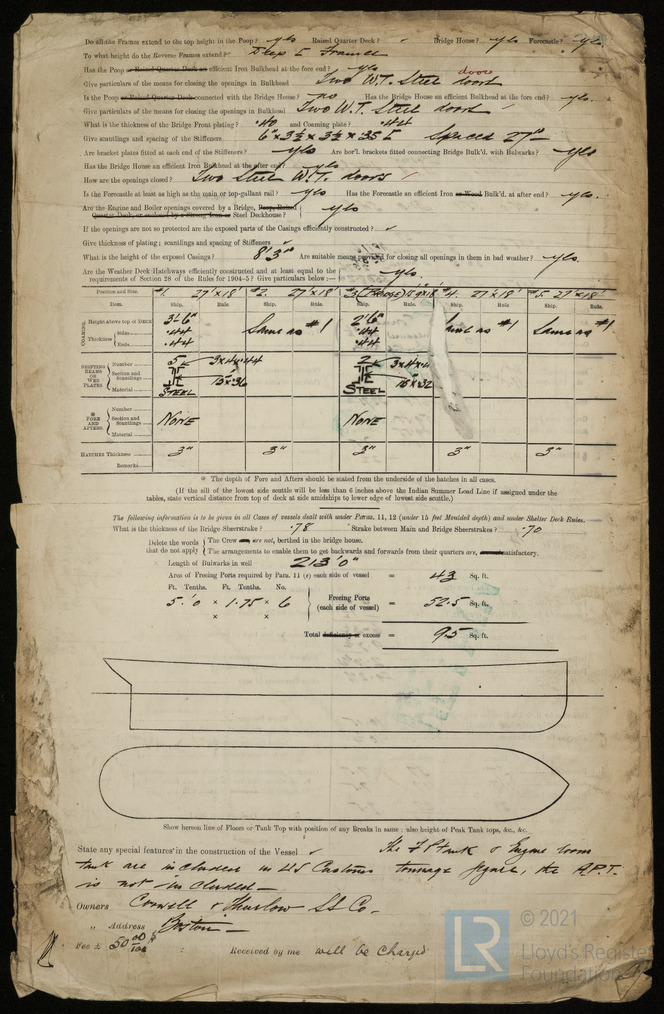 Do all the Frames extend to the top height in the Poop? yes Raised Quarter Deck? Bridge House? yes Forecastle? yes.
To what height do the Reverse Frames extend? Deep [ Frames
Has the Poop or Raised Quarter Deck an efficient Iron Bulkhead at the fore end? yes
Give particulars of the means for closing the openings in Bulkhead Two W.T. Steel doors doors
Is the Poop or Raised Quarter Deck connected with the Bridge House? no Has the Bridge House an efficient Bulkhead at the fore end? yes.
Give particulars of the means for closing the openings in Bulkhead Two W.T. Steel doors
What is the thickness of the Bridge Front plating? .40 and Coaming plate? .44
Give scantlings and spacing of the Stiffeners 6" x 3½ x 3½ x .35 [ Spaced 27"
Are bracket plates fitted at each end of the Stiffeners? yes Are hor'l. brackets fitted connecting Bridge Bulk'd. with Bulwarks? yes
Has the Bridge House an efficient Iron Bulkhead at the after end? yes
How are the openings closed? Two Steel W.T. doors
Is the Forecastle at least as high as the main or top-gallant rail? yes Has the Forecastle an efficient Iron or Wood Bulk'd. at after end? yes.
Are the Engine and Boiler openings covered by a Bridge, Poop, Raised
Quarter Deck, or enclosed by a Strong Iron or Steel Deckhouse? yes
If the openings are not so protected are the exposed parts of the Casings efficiently constructed?
Give thickness of plating; scantlings and spacing of Stiffeners
What is the height of the exposed Casings? 8'3" Are suitable means provided for closing all openings in them in bad weather? yes.
Are the Weather Deck Hatchways efficiently constructed and at least equal to the
requirements of Section 28 of the Rules for 1904-5? Give particulars below:— yes.
Position and Size. #1. 27' x 18' #2. 27' x 18' #3 (Bridge) #4. 27' x 18' #5. 27' x 18'
Item. Ship. Rule. Ship. Rule. Ship. Rule. Ship. Rule. Ship. Rule.
COAMING. Height above top of DECK 3'6" Same as #1 2'6" Same as #1 Same as #1.
Thickness Sides .44 .44
Ends .44 .44
SHIFTING BEAMS OR WEB PLATES Number 5 3x4x.44 2
Section and Scantlings 15 x .36 15 x .32
Material STEEL STEEL
* FORE AND AFTERS. Number
Section and Scantlings NONE NONE
Material
HATCHES Thickness 3" 3" 3" 3" 3"
Remarks
* The depth of Fore and Afters should be stated from the underside of the hatches in all cases.
(If the sill of the lowest side scuttle will be less than 6 inches above the Indian Summer Load Line if assigned under the
tables, state vertical distance from top of deck at side amidships to lower edge of lowest side scuttle.)
The following information is to be given in all Cases of vessels dealt with under Paras. 11, 12 (under 15 feet Moulded depth) and under Shelter Deck Rules.
What is the thickness of the Bridge Sheerstrake? .78 Strake between Main and Bridge Sheerstrakes? .70
Delete the words that do not apply
The Crew are not, berthed in the bridge house.
The arrangements to enable them to get backwards and forwards from their quarters are, satisfactory.
Length of Bulwarks in well 213'0"
Area of Freeing Ports required by Para. 11 (e) each side of vessel = 43 Sq. ft.
Ft. Tenths. Ft. Tenths. No.
5.'0 x 1.75 x 6 Freeing Ports (each side of vessel) = 52.5 Sq. ft.
x x
Total deficiency or excess = 9.5 Sq. ft.
Show hereon line of Floors or Tank Top with position of any Breaks in same; also height of Peak Tank tops, &c., &c.
State any special features in the construction of the Vessel The F.P. tank & Engine room
tank are included in US Customs tonnage figure, the A.P.T.
is not included—
Owners Crowell & Thurlow SS Co.
" Address Boston—
Fee £ 50 00/100 $ : Received by me will be charged
LR © 2021
Lloyd's Register
Foundation